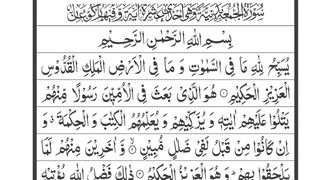 سُوْرَةُ الْجُمُعَةِ مَدَنِيَّةٌ وَّهِيَ اِحْدٰى عَشْرَةَ اٰيَةً وَّفِيْهَا رُكُوْعَانِ
بِسْمِ اللّٰهِ الرَّحْمٰنِ الرَّحِيْمِ
يُسَبِّحُ لِلّٰهِ مَا فِي السَّمٰوٰتِ وَ مَا فِي الْاَرْضِ الْمَلِكِ الْقُدُّوْسِ
الْعَزِيْزِ الْحَكِيْمِ ۝ هُوَ الَّذِيْ بَعَثَ فِي الْاُمِّيّٖنَ رَسُوْلًا مِّنْهُمْ
يَتْلُوْا عَلَيْهِمْ اٰيٰتِهٖ وَ يُزَكِّيْهِمْ وَ يُعَلِّمُهُمُ الْكِتٰبَ وَ الْحِكْمَةَ ۗ وَ
اِنْ كَانُوْا مِنْ قَبْلُ لَفِيْ ضَلٰلٍ مُّبِيْنٍ ۝ وَّ اٰخَرِيْنَ مِنْهُمْ لَمَّا
يَلْحَقُوْا بِهِمْ ۗ وَ هُوَ الْعَزِيْزُ الْحَكِيْمُ ۝ ذٰلِكَ فَضْلُ اللّٰهِ يُؤْتِيْهِ